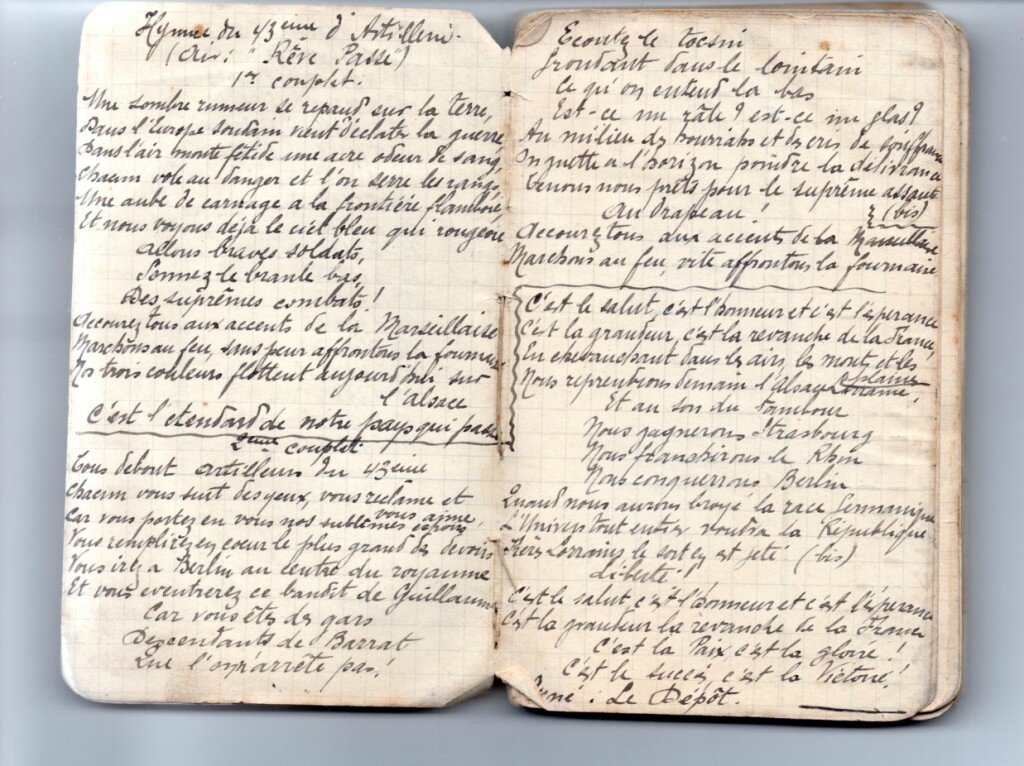 Hymne du 43eme d'Artillerie.
(Air: "Rêve Passe")
1er couplet.
Une sombre rumeur se repand sur la terre,
Dans l'Europe soudain vient d'éclater la guerre
Dans l'air monte fétide une acre odeur de sang
Chacun vole au danger et l'on serre les rangs,
Une aube de carnage a la frontière flamboie,
Et nous voyons déjà le ciel bleu qui rougeoie
Allons braves soldats,
Sonnez le branle bas,
Des suprêmes combats!
Accourez tous aux accents de la Marseillaise
Marchons au feu, sans peur affrontons la fournaise
Nos trois couleurs flottent aujourd'hui sur
l'Alsace
C'est l'etendard de notre pays qui passe
2eme couplet
Tous debout artilleurs du 43eme
Chacun vous suit des yeux, vous reclame et
vous aime,
Car vous portez en vous nos sublimes espoirs
Vous remplirez en coeur le plus grand des devoirs
Vous irez a Berlin au centre du royaume
Et vous eventrerez ce bandit de Guillaume
Car vous êtes des gars
Descendants de Barrat
Que l'on n'arrête pas!
Ecoutez le tocsin
Grondant dans le lointain
Ce qu'on entend la bas
Est-ce un râle? est-ce un glas?
Au milieu des hourrahs et des cris de
On guette a l'horizon poindre la délivrance
Tenons nous prêts pour le suprême assaut
Au drapeau! } (bis)
Accourez tous aux accents de la Marseillaise
Marchons au feu, vite affrontons la fournaise
C'est le salut, c'est l'honneur et c'est l'esperance
C'est la grandeur, c'est la revanche de la France,
En chevauchant dans les airs, les monts et les
plaines
Nous reprendrons demain l'Alsace Lorraine.
Et au son du tambour
Nous gagnerons Strasbourg
Nous franchirons le Rhin
Nous conquerrons Berlin
Quand nous aurons broyé la race Germanique
L'Univers tout entier voudra la République
Frères Lorrains le sort en est jeté (bis)
Liberté!
C'est le salut, c'est l'honneur et c'est l'esperance
C'est la grandeur la revanche de la France
C'est la Paix, c'est la gloire!
C'est le succés, c'est la Victoire!
: Le Dépôt.